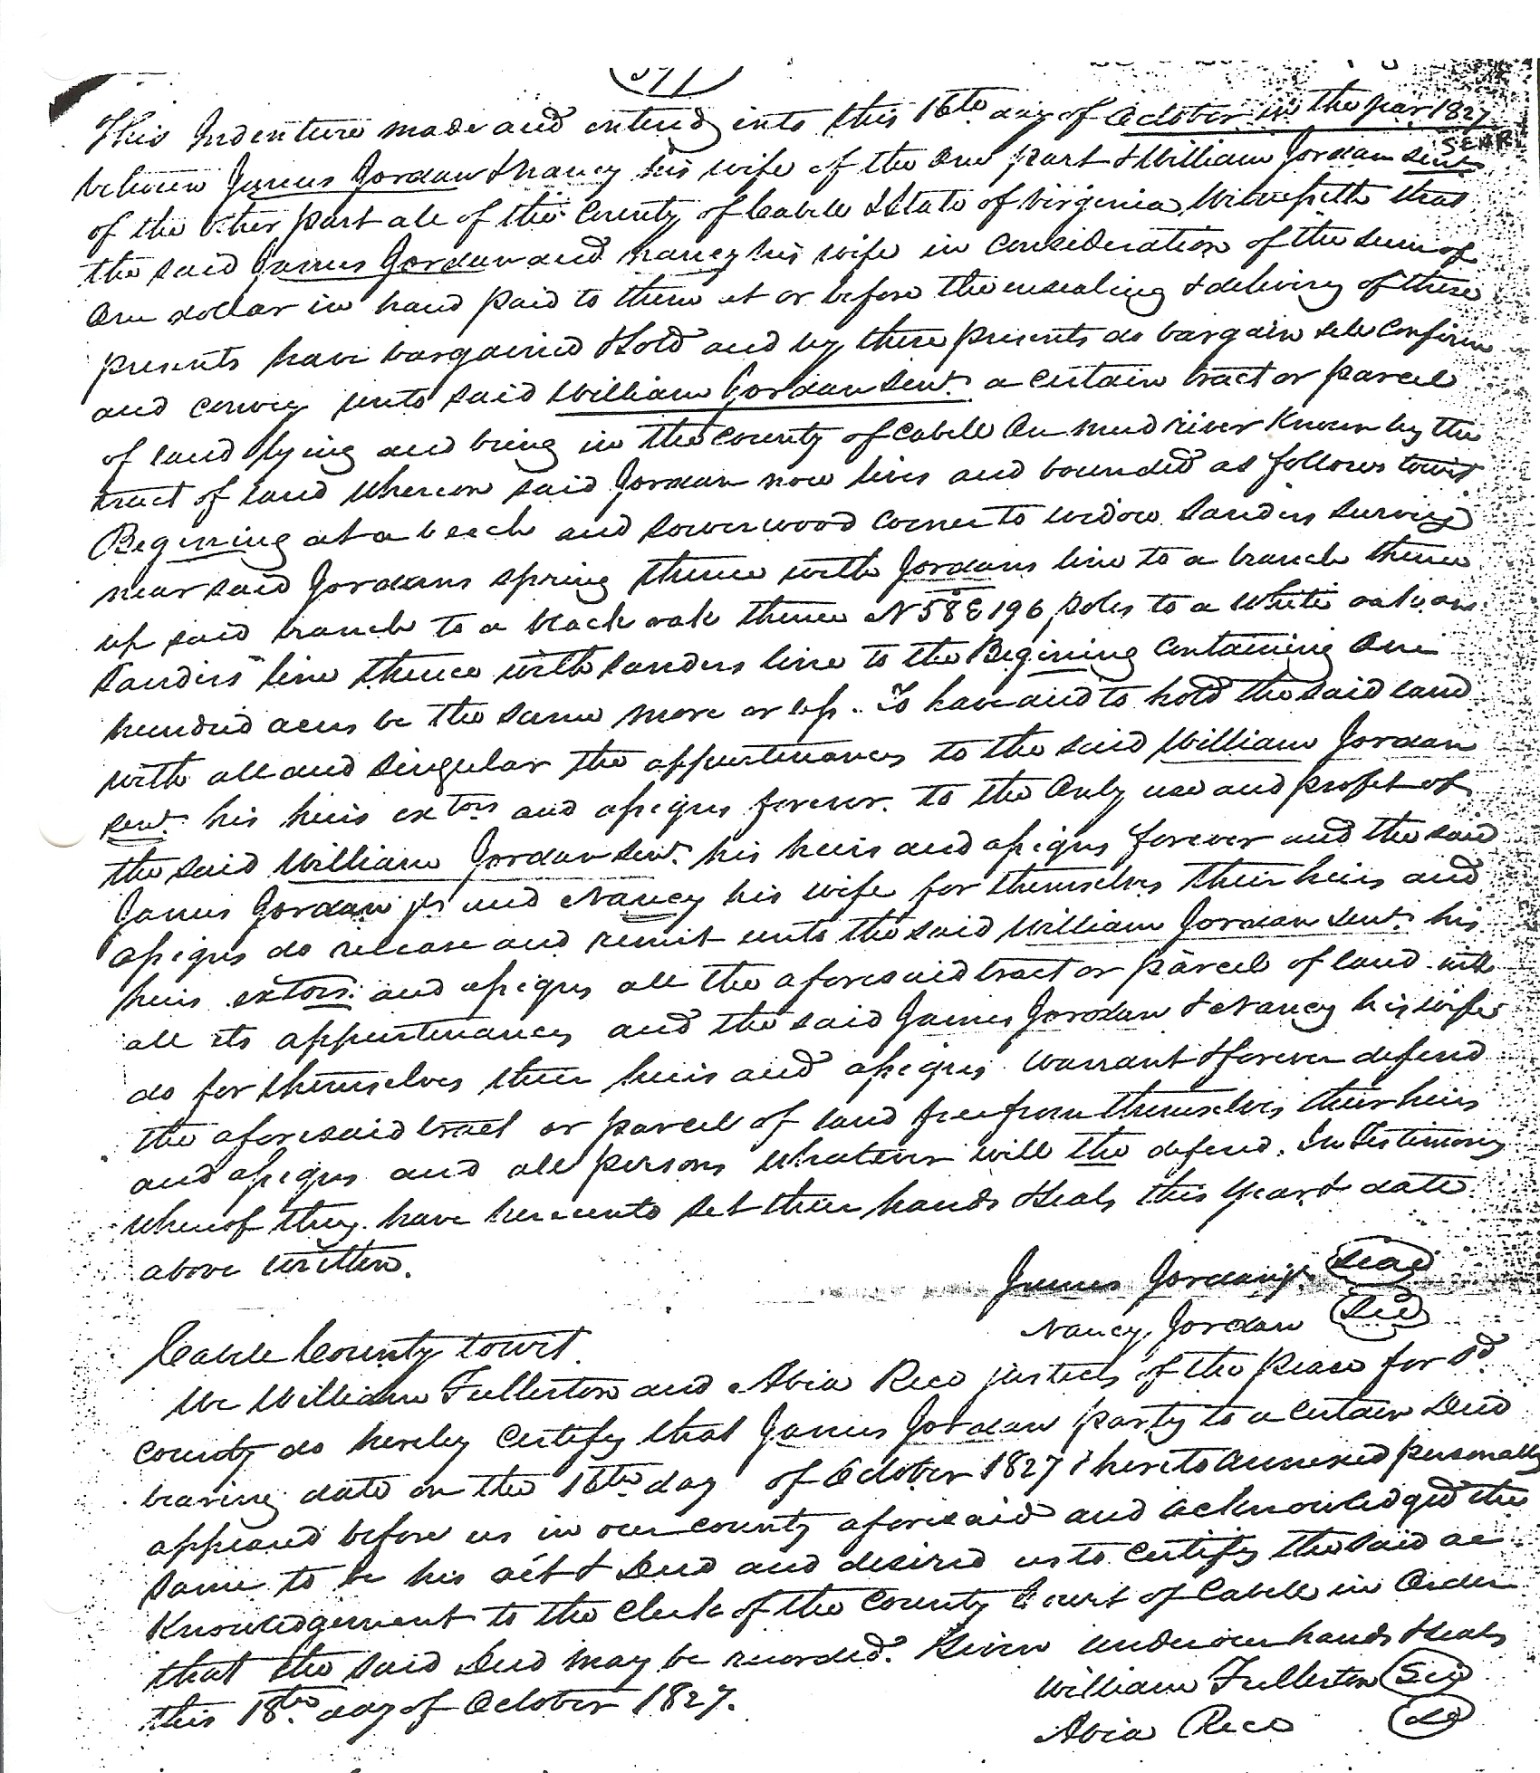 This Indenture made and entered into this 16th day of October in the year 1827
between James Jordan & Nancy his wife of the One part & William Jordan Senr
of the Other part all of the County of Cabell & State of Virginia Witnesseth that
the said James Jordan and Nancy his wife in Consideration of the sum of
One dollar in hand paid to them at or before the ensealing & delivery of these
presents have bargained & Sold and by these presents do bargain sell Confirm
and convey unto said William Jordan Senr. a certain tract or parcel
of land lying and being in the County of Cabell On mud river Known by the
tract of land whereon said Jordan now lives and bounded as follows towit
Begining at a beech and sowerwood corner to widow Sanders survey
near said Jordans spring thence with Jordans line to a branch thence
up said branch to a black oak thence N 58 E 196 poles to a White oak on
Sanders line thence with Sanders line to the Begining Containing One
hundred acres be the same more or less. To have and to hold the said land
with all and singular the appurtenances to the said William Jordan
Senr. his heirs extors and assigns forever. to the Only use and profit of
the said William Jordan Senr. his heirs and assigns forever and the said
James Jordan jr and Nancy his wife for themselves their heirs and
assigns do release and remit unto the said William Jordan Senr. his
heirs extors. and assigns all the aforesaid tract or parcel of land with
all its appurtenances and the said James Jordan & Nancy his wife
do for themselves their heirs and assigns warrant & forever defend
the aforesaid tract or parcel of land free from themselves their heirs
and assigns and all persons whatever will the defend. In Testimony
whereof they have hereunto set their hands & seals this year & date
above written.
James Jordan jr Seal
Nancy Jordan
Cabell County towit.
We William Fullerton and Abia Rece justices of the peace for sd.
County do hereby Certify that James Jordan party to a Certain Deed
bearing date on the 16th day of October 1827 & hereto annexed personally
appeared before us in our county aforesaid and acknowledged the
same to be his act & Deed and desired us to Certify the said ac
knowledgement to the Clerk of the County Court of Cabell in Order
that the said Deed may be recorded. Given under our hands & seals
this 18th. day of October 1827.
William Fullerton
Abia Rece